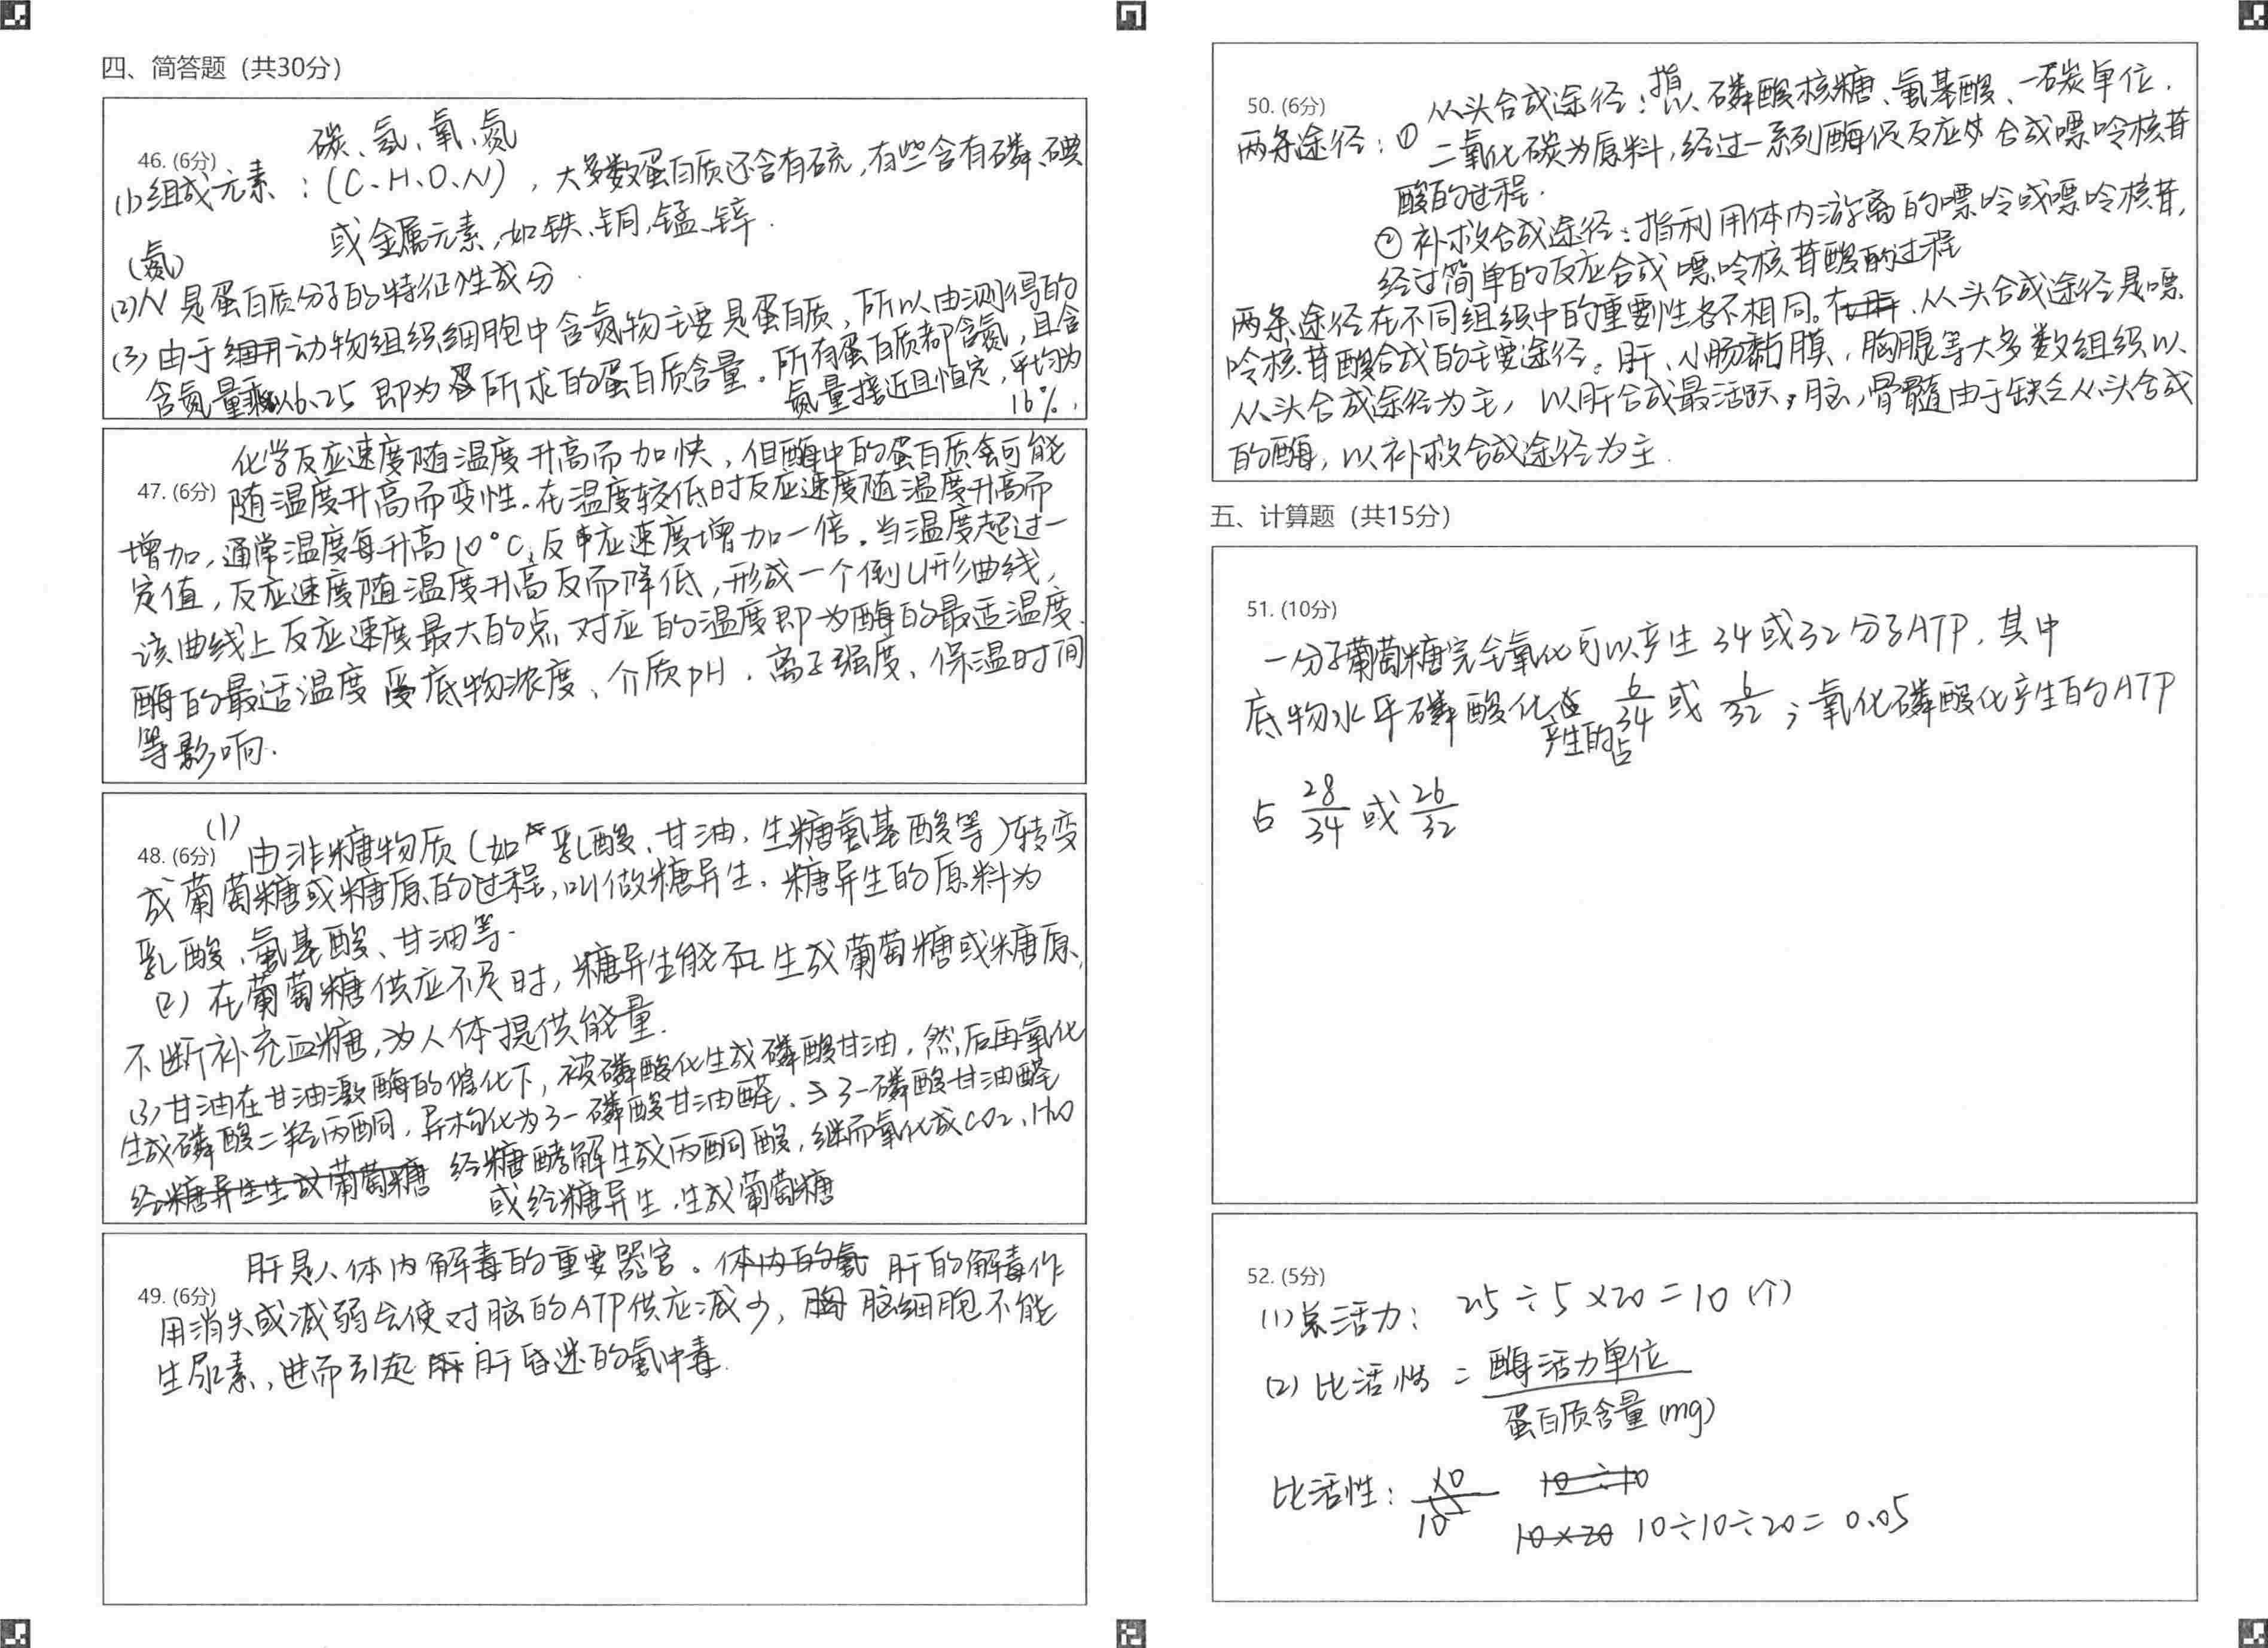 四、简答题（共30分）
46. (6分)
碳、氢、氧、氮
(1)组成元素：(C、H、O、N)，大多数蛋白质还含有硫,有些含有磷、碘
或金属元素,如铁、铜,锰、锌.
(氮)
(2)N是蛋白质分子的特征性成分.
(3)由于动物组织细胞中含氮物主要是蛋白质,所以由测得的
含氮量乘以6.25即为所求的蛋白质含量。所有蛋白质都含氮,且含
氮量接近且恒定,平均为
16%.
化学反应速度随温度升高而加快,但酶中的蛋白质会可能
47. (6分) 随温度升高而变性.在温度较低时反应速度随温度升高而
增加,通常温度每升高10°C,反应速度增加一倍。当温度超过一
定值,反应速度随温度升高反而降低,形成一个倒U形曲线,
该曲线上反应速度最大的点对应的温度即为酶的最适温度.
酶的最适温度受底物浓度、介质pH、离子强度、保温时间
等影响.
(1)
48. (6分) 由非糖物质(如乳酸、甘油,生糖氨基酸等)转变
成葡萄糖或糖原的过程,叫做糖异生.糖异生的原料为
乳酸、氨基酸、甘油等.
(2)在葡萄糖供应不足时,糖异生能生成葡萄糖或糖原,
不断补充血糖,为人体提供能量.
(3)甘油在甘油激酶的催化下,被磷酸化生成磷酸甘油,然后再氧化
生成磷酸二羟丙酮,异构化为3-磷酸甘油醛.3-磷酸甘油醛
经糖异生生成葡萄糖 经糖酵解生成丙酮酸,继而氧化成CO2、H2O
或经糖异生,生成葡萄糖
肝是人体内解毒的重要器官。体内的氨 肝的解毒作
49. (6分)
用消失或减弱会使对脑的ATP供应减少,脑细胞不能
生尿素,进而引起肝昏迷的氨中毒.
50. (6分)
从头合成途径:指以磷酸核糖、氨基酸、一碳单位.
两条途径:① 二氧化碳为原料,经过一系列酶促反应 合成嘌呤核苷
酸的过程.
②补救合成途径:指利用体内游离的嘌呤或嘌呤核苷,
经过简单的反应合成嘌呤核苷酸的过程
两条途径在不同组织中的重要性各不相同。在肝.从头合成途径是嘌
呤核苷酸合成的主要途径。肝、小肠黏膜,胸腺等大多数组织以
从头合成途径为主,以肝合成最活跃,脑,骨髓由于缺乏从头合成
的酶,以补救合成途径为主.
五、计算题（共15分）
51. (10分)
一分子葡萄糖完全氧化可以产生34或32分子ATP,其中
底物水平磷酸化产生的占 6/34 或 6/32 ；氧化磷酸化产生的ATP
占 28/34 或 26/32
52. (5分)
(1)总活力: 2.5÷5×20=10(个)
(2)比活性 = 酶活力单位/蛋白质含量(mg)
比活性: 10/10 10÷10
10×20 10÷10÷20=0.05